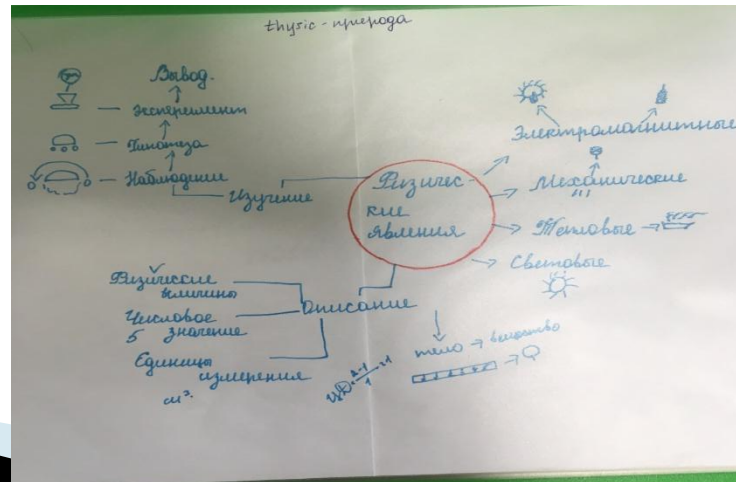 thysic - природа
Вывод.
Эксперимент
Гипотеза
Наблюдение
Изучение
Физичес-
кие
явления
Электромагнитные
Механические
Тепловые
Световые
Физические
величины
Числовое
5 значение
Единицы
измерения
см³.
Описание
тело → вещество